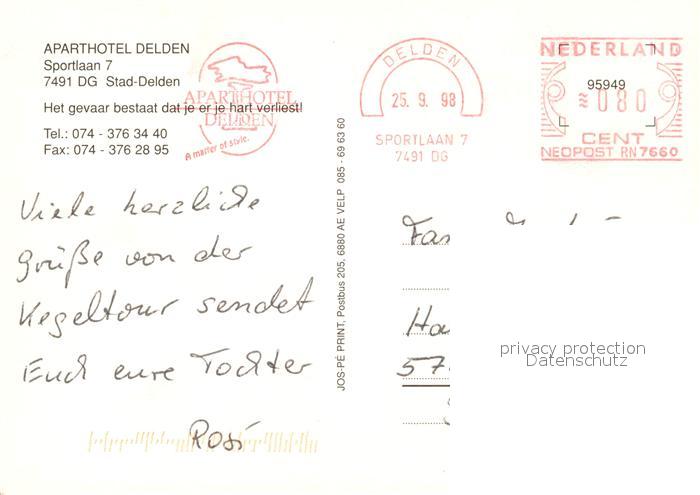 APARTHOTEL DELDEN
Sportlaan 7
7491 DG Stad-Delden
Het gevaar bestaat dat je er je hart verliest!
Tel.: 074 - 376 34 40
Fax: 074 - 376 28 95
APARTHOTEL
DELDEN
A matter of style.
DELDEN
25. 9. 98
SPORTLAAN 7
7491 DG
NEDERLAND
95949
≈080
CENT
NEOPOST RN7660
Viele herzliche
grüße von der
Kegeltour sendet
Euch eure Tochter
Rosi
JOS-PÉ PRINT, Postbus 205, 6880 AE VELP 085 - 69 63 60
Fam
Ha
57
privacy protection
Datenschutz